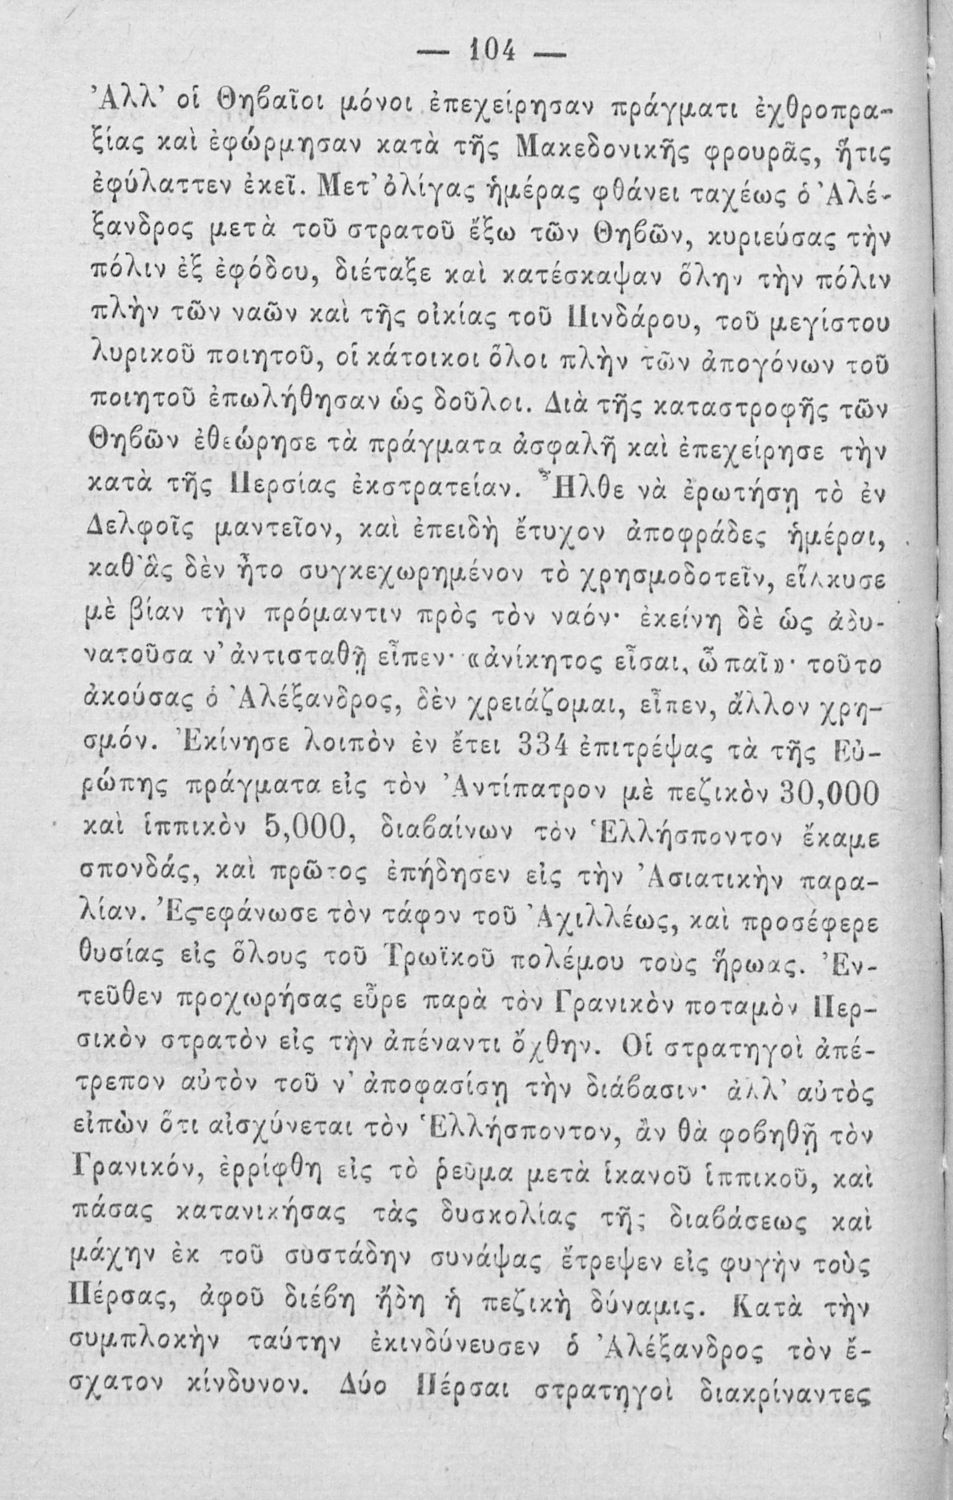 — 104 —
Ἀλλ’ οἱ Θηβαῖοι μόνοι ἐπεχείρησαν πράγματι ἐχθροπρα-
ξίας καὶ ἐφώρμησαν κατὰ τῆς Μακεδονικῆς φρουρᾶς, ἥτις
ἐφύλαττεν ἐκεῖ. Μετ’ ὀλίγας ἡμέρας φθάνει ταχέως ὁ Ἀλέ-
ξανδρος μετὰ τοῦ στρατοῦ ἔξω τῶν Θηβῶν, κυριεύσας τὴν
πόλιν ἐξ ἐφόδου, διέταξε καὶ κατέσκαψαν ὅλην τὴν πόλιν
πλὴν τῶν ναῶν καὶ τῆς οἰκίας τοῦ Πινδάρου, τοῦ μεγίστου
λυρικοῦ ποιητοῦ, οἱ κάτοικοι ὅλοι πλὴν τῶν ἀπογόνων τοῦ
ποιητοῦ ἐπωλήθησαν ὡς δοῦλοι. Διὰ τῆς καταστροφῆς τῶν
Θηβῶν ἐθεώρησε τὰ πράγματα ἀσφαλῆ καὶ ἐπεχείρησε τὴν
κατὰ τῆς Περσίας ἐκστρατείαν. Ἦλθε νὰ ἐρωτήσῃ τὸ ἐν
Δελφοῖς μαντεῖον, καὶ ἐπειδὴ ἔτυχον ἀποφράδες ἡμέραι,
καθ’ ἃς δὲν ἦτο συγκεχωρημένον τὸ χρησμοδοτεῖν, εἵλκυσε
μὲ βίαν τὴν πρόμαντιν πρὸς τὸν ναόν· ἐκείνη δὲ ὡς ἀδυ-
νατοῦσα ν’ ἀντισταθῇ εἶπεν· «ἀνίκητος εἶσαι, ὦ παῖ»· τοῦτο
ἀκούσας ὁ Ἀλέξανδρος, δὲν χρειάζομαι, εἶπεν, ἄλλον χρη-
σμόν. Ἐκίνησε λοιπὸν ἐν ἔτει 334 ἐπιτρέψας τὰ τῆς Εὐ-
ρώπης πράγματα εἰς τὸν Ἀντίπατρον μὲ πεζικὸν 30,000
καὶ ἱππικὸν 5,000, διαβαίνων τὸν Ἑλλήσποντον ἔκαμε
σπονδάς, καὶ πρῶτος ἐπήδησεν εἰς τὴν Ἀσιατικὴν παρα-
λίαν. Ἐστεφάνωσε τὸν τάφον τοῦ Ἀχιλλέως, καὶ προσέφερε
θυσίας εἰς ὅλους τοῦ Τρωϊκοῦ πολέμου τοὺς ἥρωας. Ἐν-
τεῦθεν προχωρήσας εὗρε παρὰ τὸν Γρανικὸν ποταμὸν Περ-
σικὸν στρατὸν εἰς τὴν ἀπέναντι ὄχθην. Οἱ στρατηγοὶ ἀπέ-
τρεπον αὐτὸν τοῦ ν’ ἀποφασίσῃ τὴν διάβασιν· ἀλλ’ αὐτὸς
εἰπὼν ὅτι αἰσχύνεται τὸν Ἑλλήσποντον, ἂν θὰ φοβηθῇ τὸν
Γρανικόν, ἐρρίφθη εἰς τὸ ῥεῦμα μετὰ ἱκανοῦ ἱππικοῦ, καὶ
πάσας κατανικήσας τὰς δυσκολίας τῆς διαβάσεως καὶ
μάχην ἐκ τοῦ συστάδην συνάψας ἔτρεψεν εἰς φυγὴν τοὺς
Πέρσας, ἀφοῦ διέβη ἤδη ἡ πεζικὴ δύναμις. Κατὰ τὴν
συμπλοκὴν ταύτην ἐκινδύνευσεν ὁ Ἀλέξανδρος τὸν ἔ-
σχατον κίνδυνον. Δύο Πέρσαι στρατηγοὶ διακρίναντες